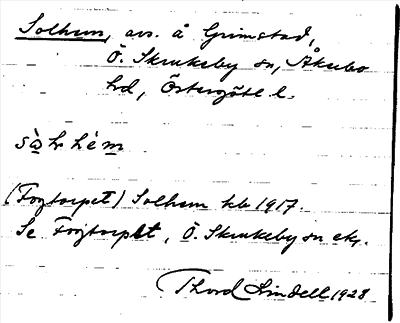 Solhem, avs. å Grimstad,
Ö. Skrukeby sn, Åkerbo
hd, Östergötl l.
sòlhèm
(Fogtorpet) Solhem hb 1917.
Se Fogtorpet, Ö. Skrukeby sn ek.
Thord Lindell 1928